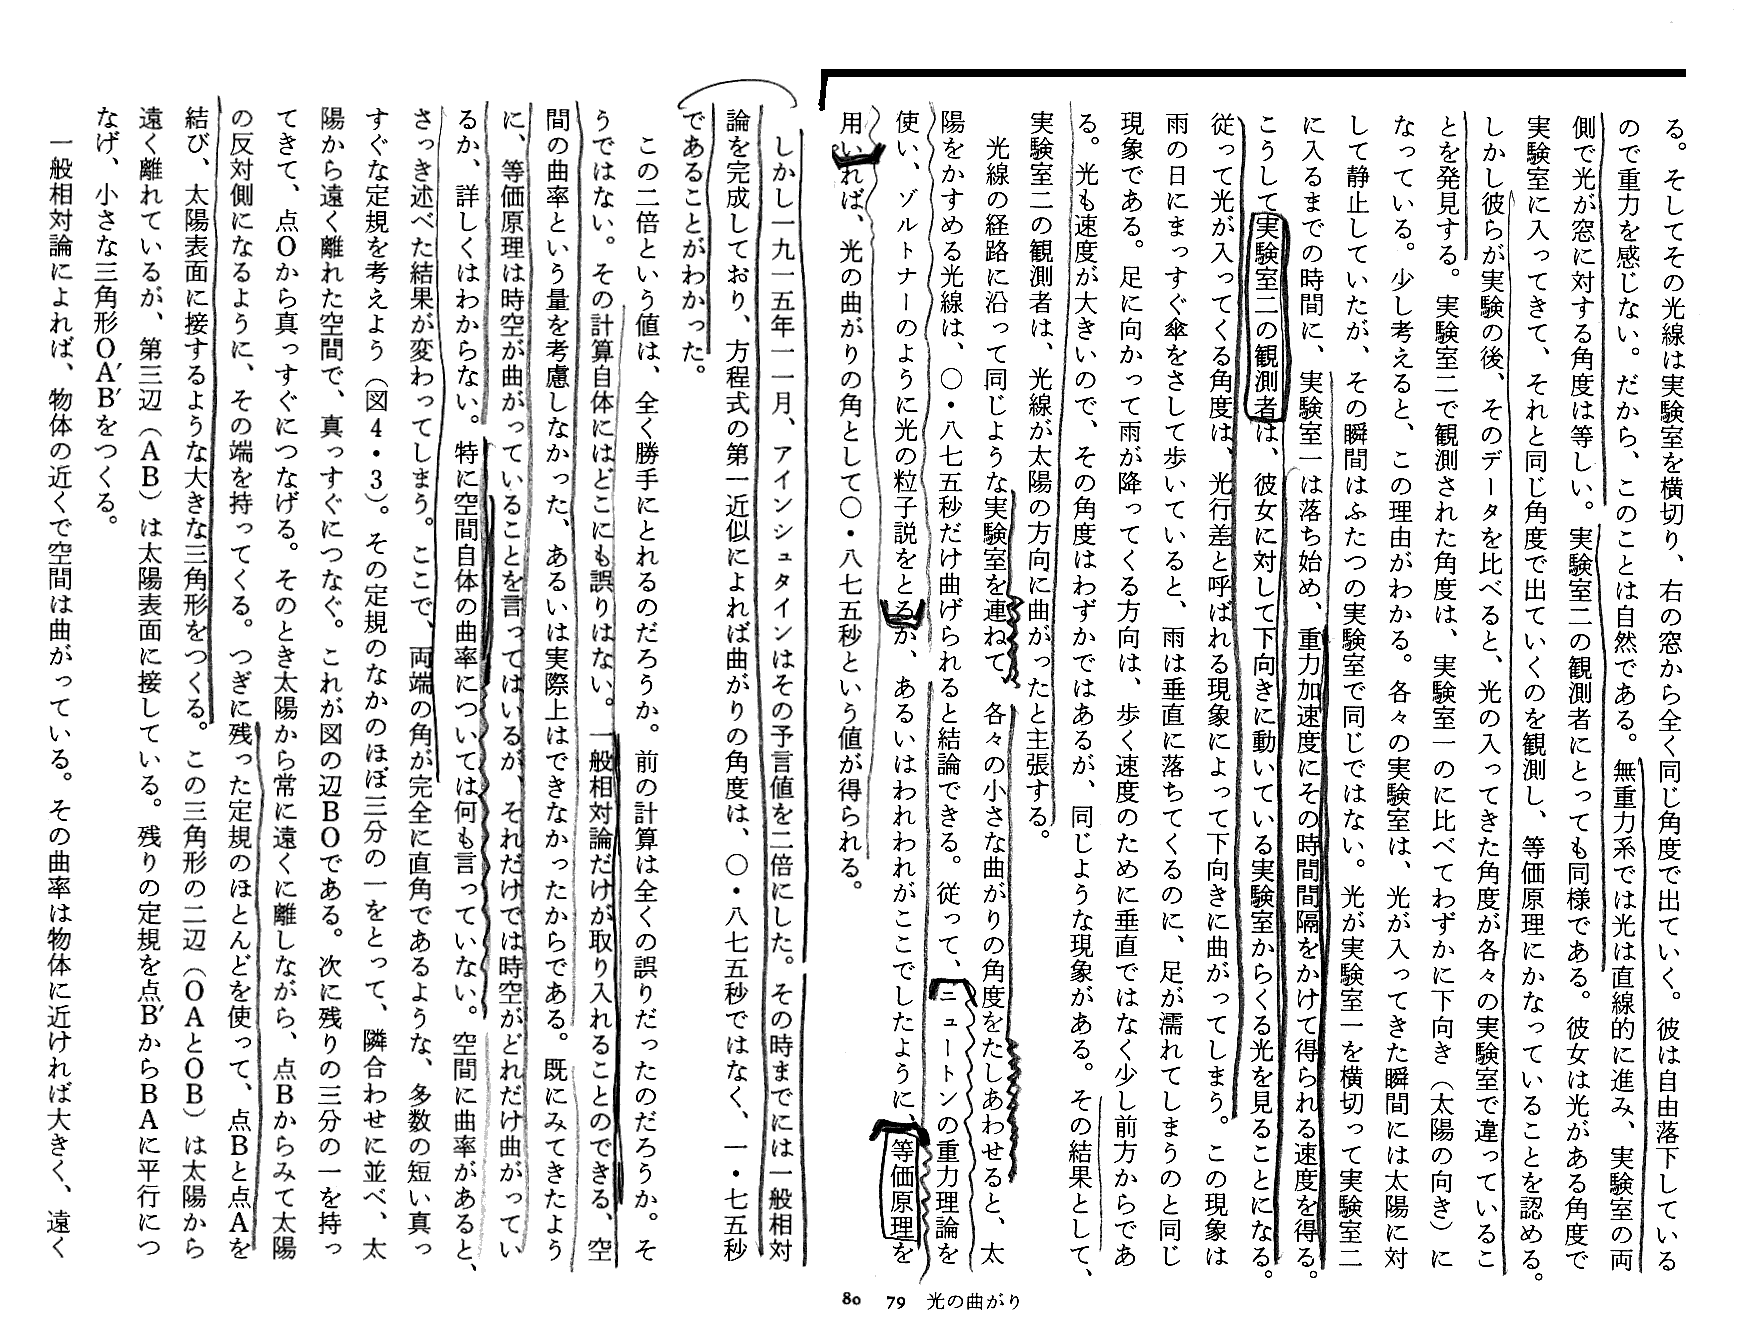 る。そしてその光線は実験室を横切り、右の窓から全く同じ角度で出ていく。彼は自由落下している
ので重力を感じない。だから、このことは自然である。無重力系では光は直線的に進み、実験室の両
側で光が窓に対する角度は等しい。実験室二の観測者にとっても同様である。彼女は光がある角度で
実験室に入ってきて、それと同じ角度で出ていくのを観測し、等価原理にかなっていることを認める。
しかし彼らが実験の後、そのデータを比べると、光の入ってきた角度が各々の実験室で違っているこ
とを発見する。実験室二で観測された角度は、実験室一のに比べてわずかに下向き（太陽の向き）に
なっている。少し考えると、この理由がわかる。各々の実験室は、光が入ってきた瞬間には太陽に対
して静止していたが、その瞬間はふたつの実験室で同じではない。光が実験室一を横切って実験室二
に入るまでの時間に、実験室一は落ち始め、重力加速度にその時間間隔をかけて得られる速度を得る。
こうして実験室二の観測者は、彼女に対して下向きに動いている実験室からくる光を見ることになる。
従って光が入ってくる角度は、光行差と呼ばれる現象によって下向きに曲がってしまう。この現象は
雨の日にまっすぐ傘をさして歩いていると、雨は垂直に落ちてくるのに、足が濡れてしまうのと同じ
現象である。足に向かって雨が降ってくる方向は、歩く速度のために垂直ではなく少し前方からであ
る。光も速度が大きいので、その角度はわずかではあるが、同じような現象がある。その結果として、
実験室二の観測者は、光線が太陽の方向に曲がったと主張する。
光線の経路に沿って同じような実験室を連ねて、各々の小さな曲がりの角度をたしあわせると、太
陽をかすめる光線は、〇・八七五秒だけ曲げられると結論できる。従って、ニュートンの重力理論を
使い、ゾルトナーのように光の粒子説をとるか、あるいはわれわれがここでしたように、等価原理を
用いれば、光の曲がりの角として〇・八七五秒という値が得られる。
しかし一九一五年一一月、アインシュタインはその予言値を二倍にした。その時までには一般相対
論を完成しており、方程式の第一近似によれば曲がりの角度は、〇・八七五秒ではなく、一・七五秒
であることがわかった。
この二倍という値は、全く勝手にとれるのだろうか。前の計算は全くの誤りだったのだろうか。そ
うではない。その計算自体にはどこにも誤りはない。一般相対論だけが取り入れることのできる、空
間の曲率という量を考慮しなかった、あるいは実際上はできなかったからである。既にみてきたよう
に、等価原理は時空が曲がっていることを言ってはいるが、それだけでは時空がどれだけ曲がってい
るか、詳しくはわからない。特に空間自体の曲率については何も言っていない。空間に曲率があると、
さっき述べた結果が変わってしまう。ここで、両端の角が完全に直角であるような、多数の短い真っ
すぐな定規を考えよう（図4・3）。その定規のなかのほぼ三分の一をとって、隣合わせに並べ、太
陽から遠く離れた空間で、真っすぐにつなぐ。これが図の辺BOである。次に残りの三分の一を持っ
てきて、点Oから真っすぐにつなげる。そのとき太陽から常に遠くに離しながら、点Bからみて太陽
の反対側になるように、その端を持ってくる。つぎに残った定規のほとんどを使って、点Bと点Aを
結び、太陽表面に接するような大きな三角形をつくる。この三角形の二辺（OAとOB）は太陽から
遠く離れているが、第三辺（AB）は太陽表面に接している。残りの定規を点B′からBAに平行につ
なげ、小さな三角形OA′B′をつくる。
一般相対論によれば、物体の近くで空間は曲がっている。その曲率は物体に近ければ大きく、遠く
80 79 光の曲がり